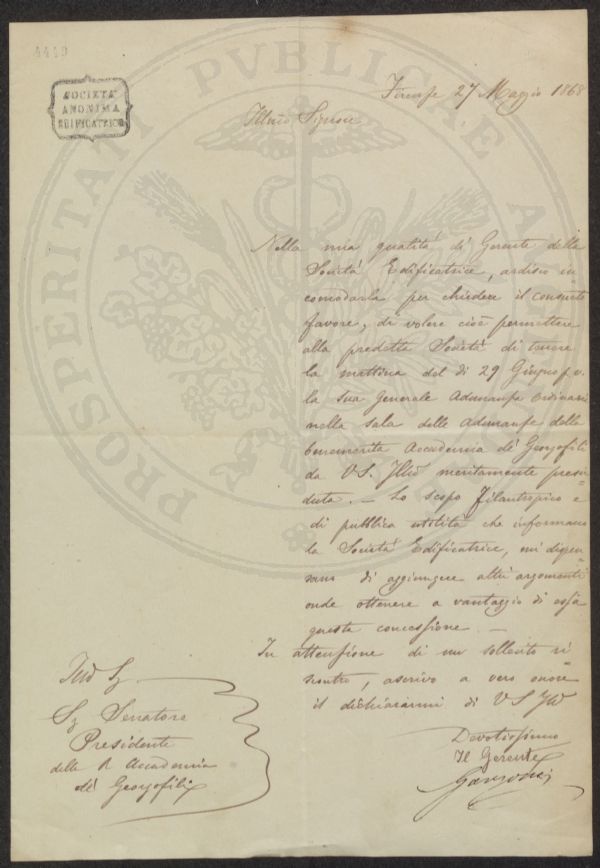 4419
SOCIETÀ
ANONIMA
EDIFICATRICE
PROSPERITATI PUBLICAE
Firenze 27 Maggio 1868
Illmo Signore
Nella mia qualità di Gerente della
Società Edificatrice, ardisco in=
comodarla per chiedere il consueto
favore, di volere cioè permettere
alla predetta Società di tenere
la mattina del dì 29 Giugno p.v.
la sua generale Adunanza ordinaria
nella sala delle Adunanze della
benemerita Accademia dè Georgofili
da VS. Illma meritamente presie=
duta. — Lo scopo filantropico e
di pubblica utilità che informano
la Società Edificatrice, mi dispen=
sano di aggiungere altri argomenti
onde ottenere a vantaggio di essa
questa concessione. —
In attenzione di un sollecito ri=
scontro, ascrivo a vero onore
il dichiararmi di VS Illma
Devotissimo
Il Gerente
Illmo Sig
Sig Senatore
Presidente
della R Accademia
dè Georgofili